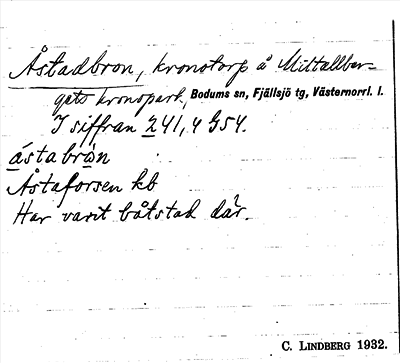 Åstadbron, kronotorp å Mittallber-
gets kronopark, Bodums sn, Fjällsjö tg, Västernorrl. l.
I siffran 241, 4 954.
ástabrȯ̀n
Åstaforsen kb
Har varit båtstad där.
C. LINDBERG 1932.